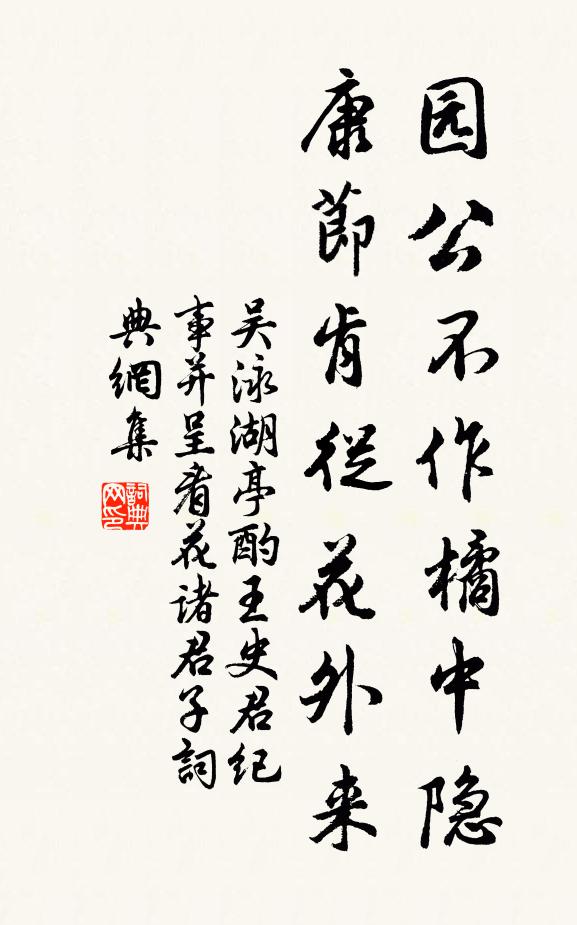 园公不作橘中隐
康節肯從花外来
吴泳湖亭酌王史君纪
事并呈看花诸君子詞
典網集
詞典网印